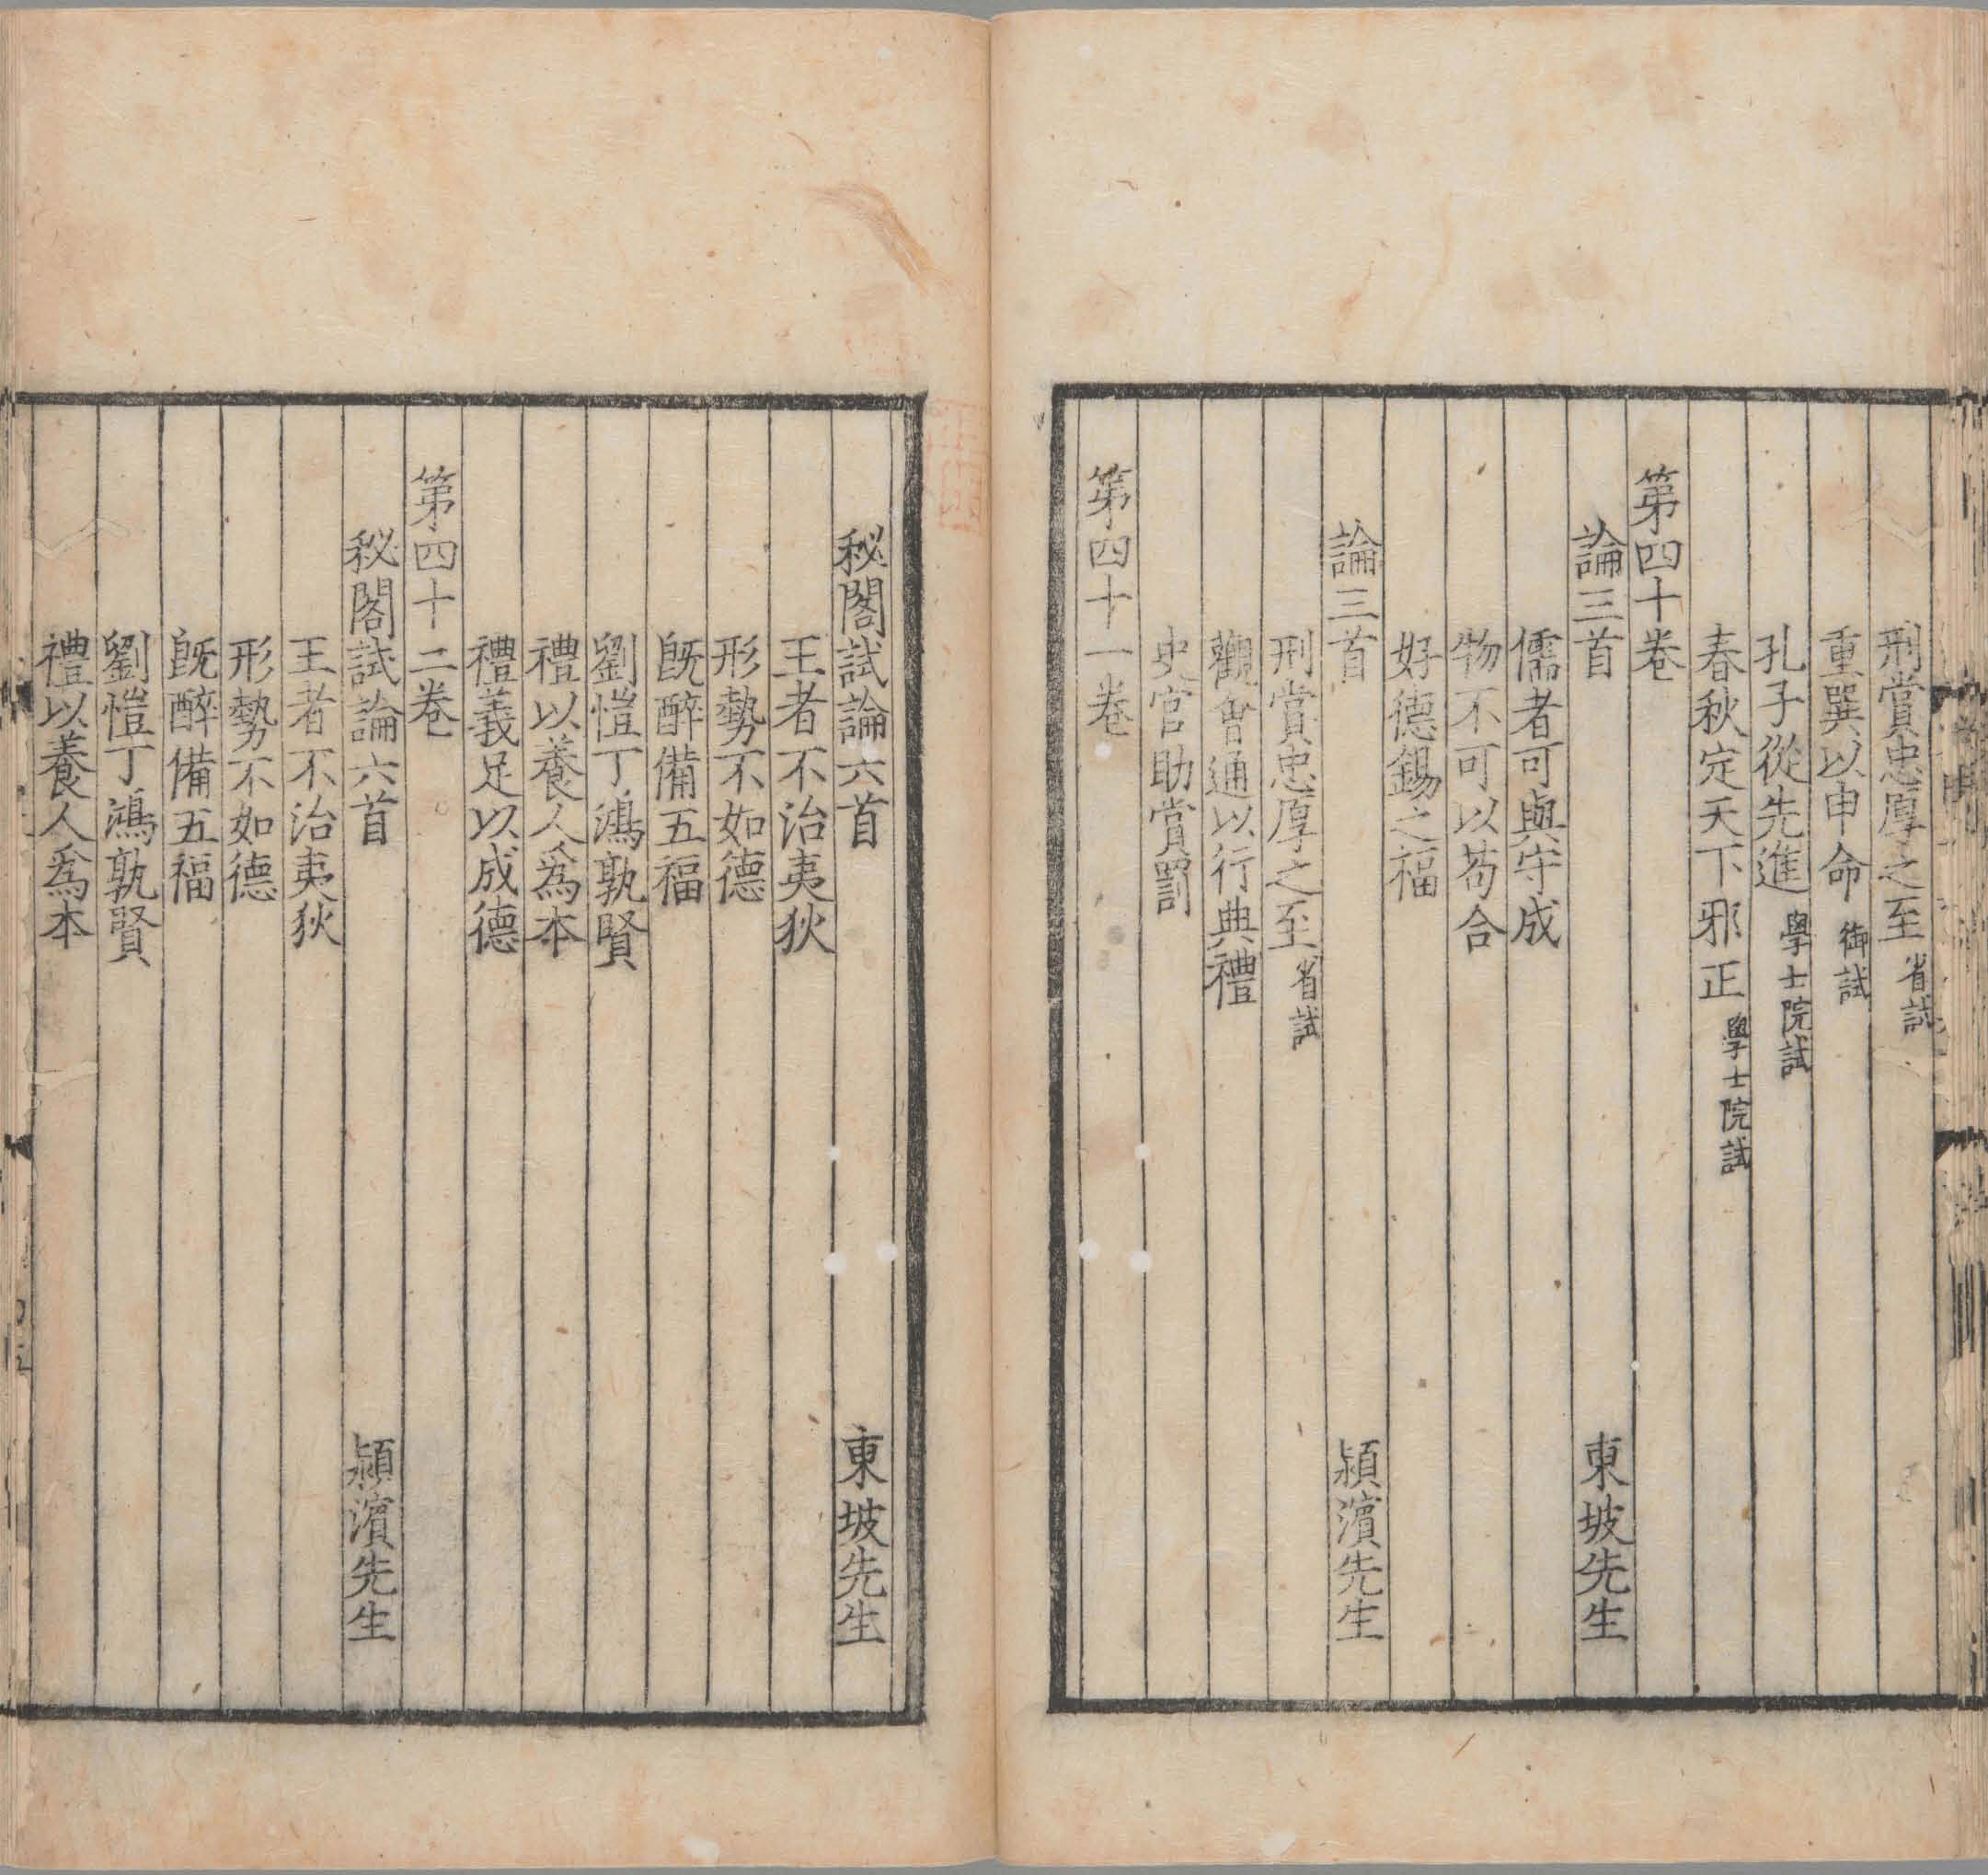 刑賞忠厚之至省試
重巽以申命御試
孔子從先進學士院試
春秋定天下邪正學士院試
第四十卷
論三首　東坡先生
儒者可與守成
物不可以苟合
好德錫之福
論三首　潁濱先生
刑賞忠厚之至省試
觀會通以行典禮
史官助賞罰
第四十一卷
秘閣試論六首　東坡先生
王者不治夷狄
形勢不如德
既醉備五福
劉愷丁鴻孰賢
禮以養人爲本
禮義足以成德
第四十二卷
秘閣試論六首　潁濱先生
王者不治夷狄
形勢不如德
既醉備五福
劉愷丁鴻孰賢
禮以養人爲本